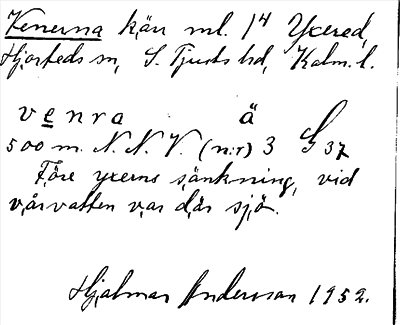 Venerna kärr ml. 1⁴ Yxered,
Hjorteds sn, S. Tjusts hd, Kalm. l.
venra ä
500 m. N. N. V. (n:r) 3 G 37
Före yxerns sänkning, vid
vårvatten var där sjö.
Hjalmar Andersson 1952.